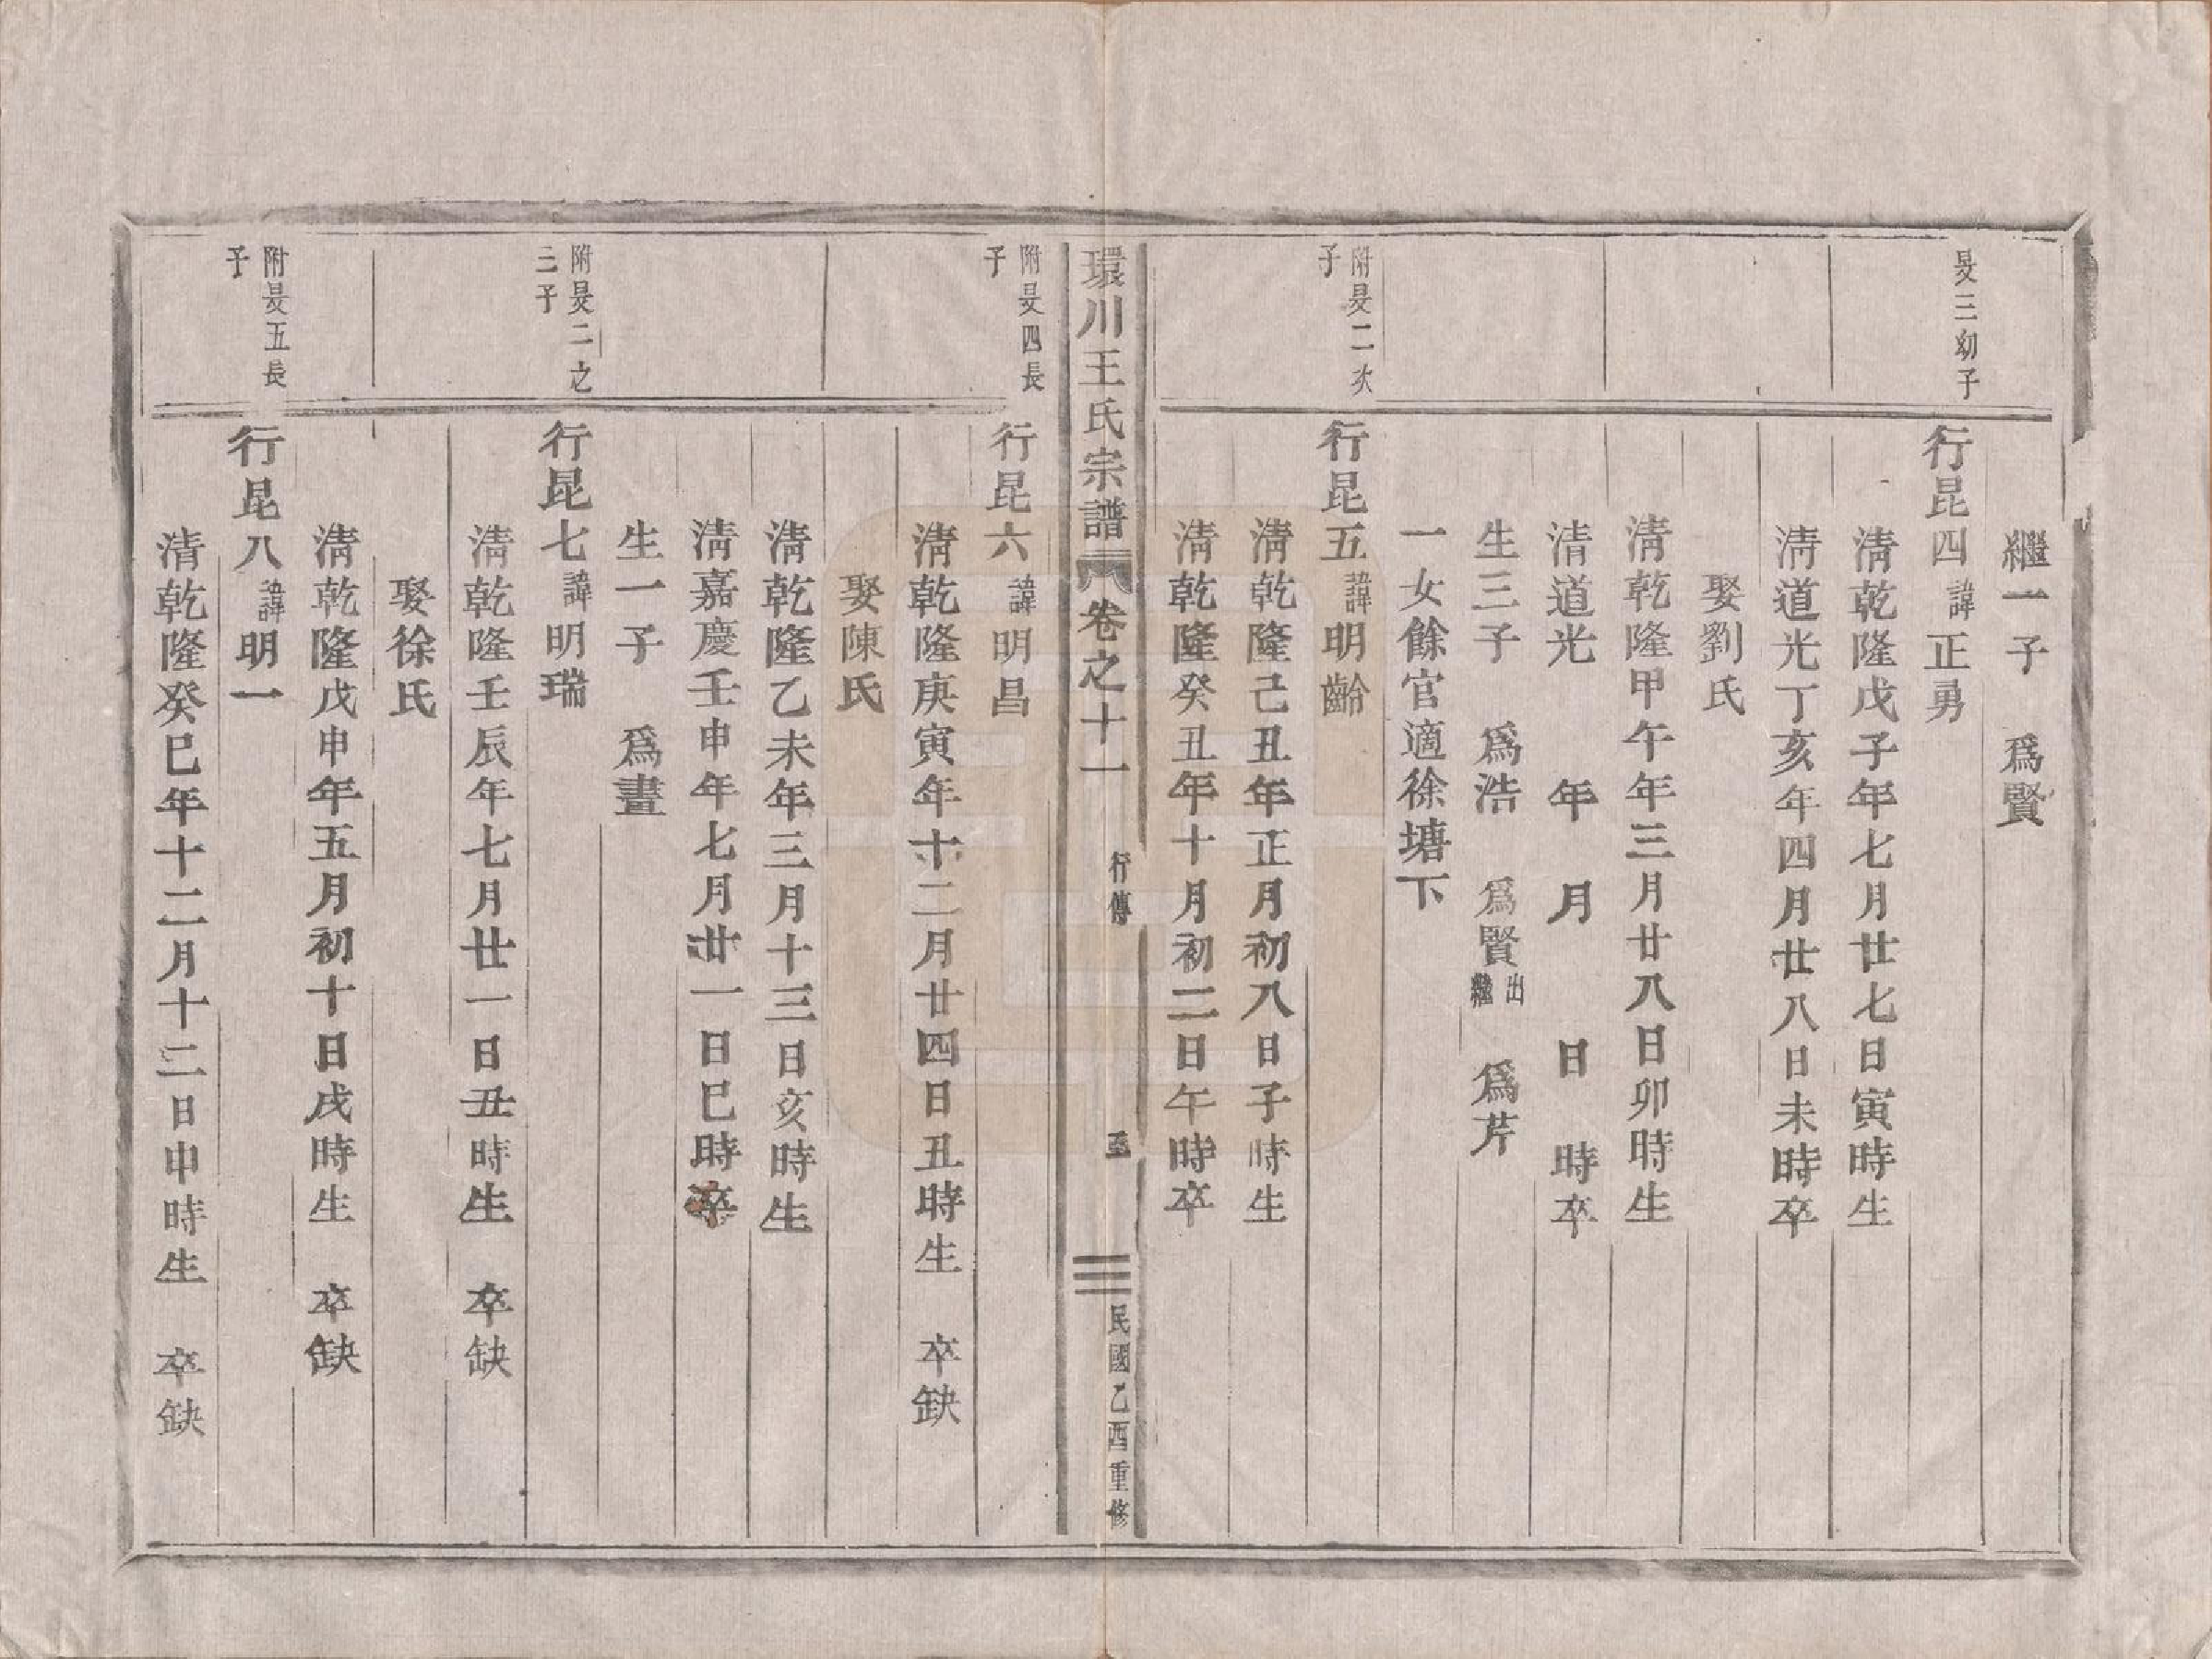 繼一子　爲賢
旻三幼子
行昆四諱正勇
清乾隆戊子年七月廿七日寅時生
清道光丁亥年四月廿八日未時卒
娶劉氏
清乾隆甲午年三月廿八日卯時生
清道光　年　月　日　時卒
生三子　爲浩　爲賢出繼　爲芹
一女餘官適徐塘下
附旻二次子
行昆五諱明齡
清乾隆己丑年正月初八日子時生
清乾隆癸丑年十月初二日午時卒
環川王氏宗譜　卷之十一　行傳　民國乙酉重修
附旻四長子
行昆六諱明昌
清乾隆庚寅年十二月廿四日丑時生　卒缺
娶陳氏
清乾隆乙未年三月十三日亥時生
清嘉慶壬申年七月廿一日巳時卒
生一子　爲晝
附旻二之三子
行昆七諱明瑞
清乾隆壬辰年七月廿一日丑時生　卒缺
娶徐氏
清乾隆戊申年五月初十日戌時生　卒缺
附旻五長子
行昆八諱明一
清乾隆癸巳年十二月十二日申時生　卒缺